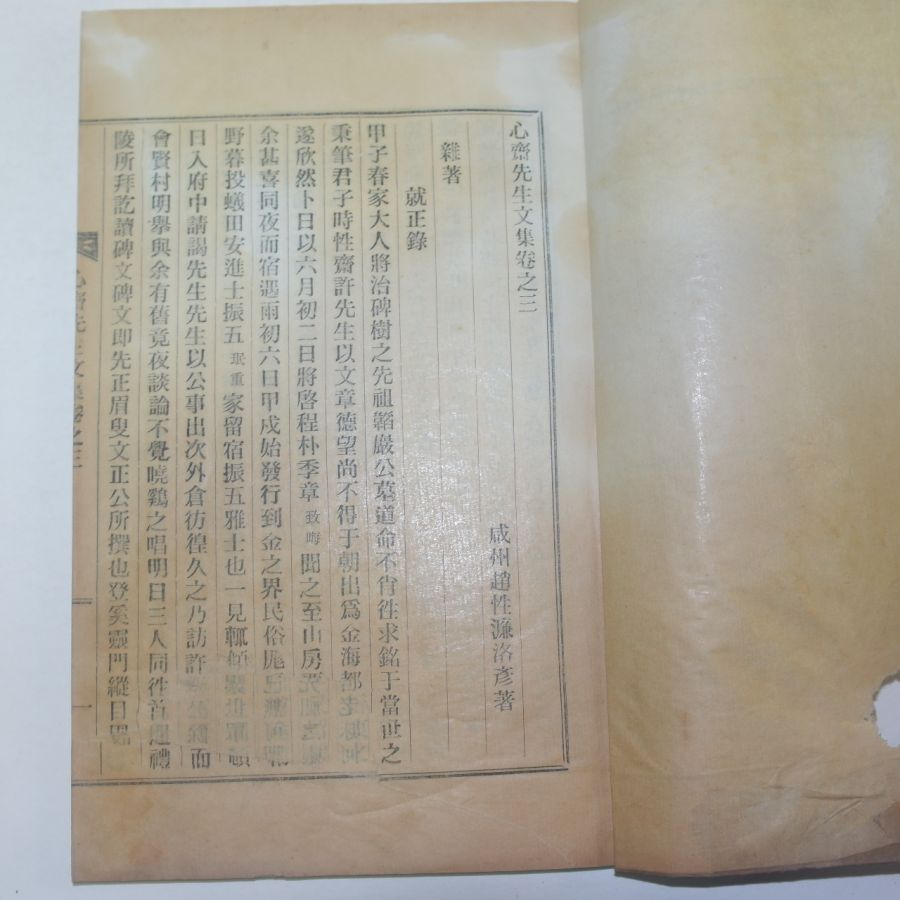 心齋先生文集卷之三
咸州趙性濂洛彥著
雜著
就正錄
甲子春家大人將治碑樹之先祖韜巖公墓道命不肯徃求銘于當世之
秉筆君子時性齋許先生以文章德望尚不得于朝出爲金海都
遂欣然卜日以六月初二日將啓程朴季章致晦聞之至山房
余甚喜同夜而宿遇雨初六日甲戍始發行到金之界民俗
野暮投蟻田安進士振五珉重家留宿振五雅士也一見輒傾
日入府中請謁先生先生以公事出次外倉彷徨久之乃訪許而
會賢村明擧與余有舊竟夜談論不覺曉鷄之唱明日三人同徃首禮
陵所拜訖讀碑文碑文即先正眉叟文正公所撰也登奚靈門縱目
心齋先生文集卷之三
一